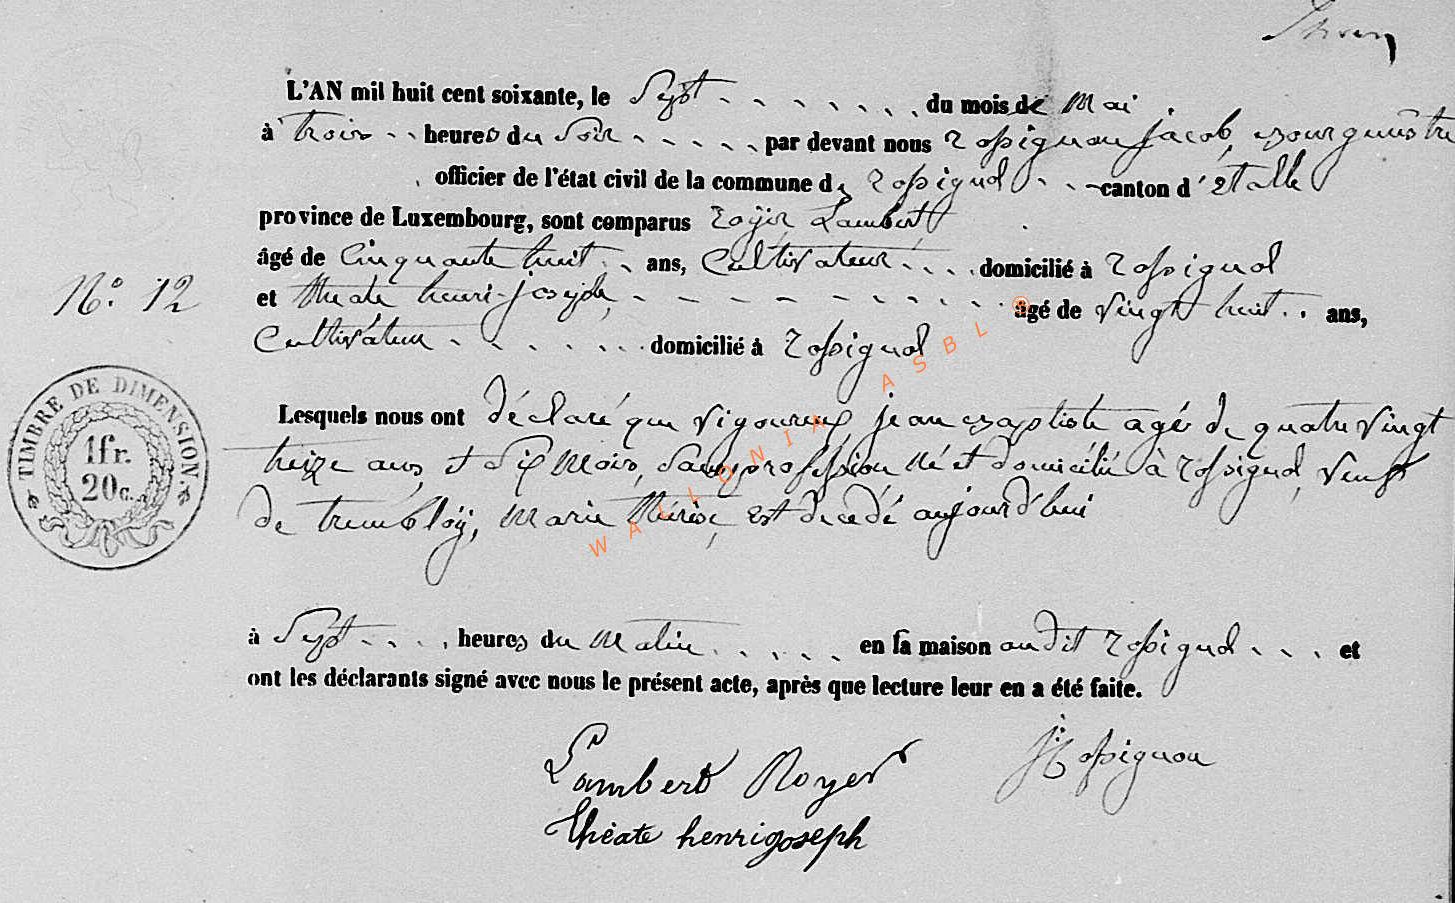 L'AN mil huit cent soixante, le Sept du mois de Mai
à trois heures du Soir par devant nous Rossignon jacob, bourguemestre
officier de l'état civil de la commune de Rossignol canton d'étalle
province de Luxembourg, sont comparus Royer Lambert
âgé de Cinquante huit ans, Cultivateur domicilié à Rossignol
N.° 12
et théate henri-joseph, âgé de vingt huit ans,
Cultivateur domicilié à Rossignol
TIMBRE DE DIMENSION.
1 fr.
20 c.
Lesquels nous ont déclaré que vigoureux jean baptiste agé de quatre vingt
treize ans, et Six Mois, Sans profession, Né et domicilié à Rossignol, veuf
de trembloÿ, Marie thérèse, est décédé aujourd'hui
à Sept heures du Matin en sa maison audit Rossignol et
ont les déclarants signé avec nous le présent acte, après que lecture leur en a été faite.
Lambert Royer
JRossignon
théate henrigoseph
WALLONIA ASBL ©